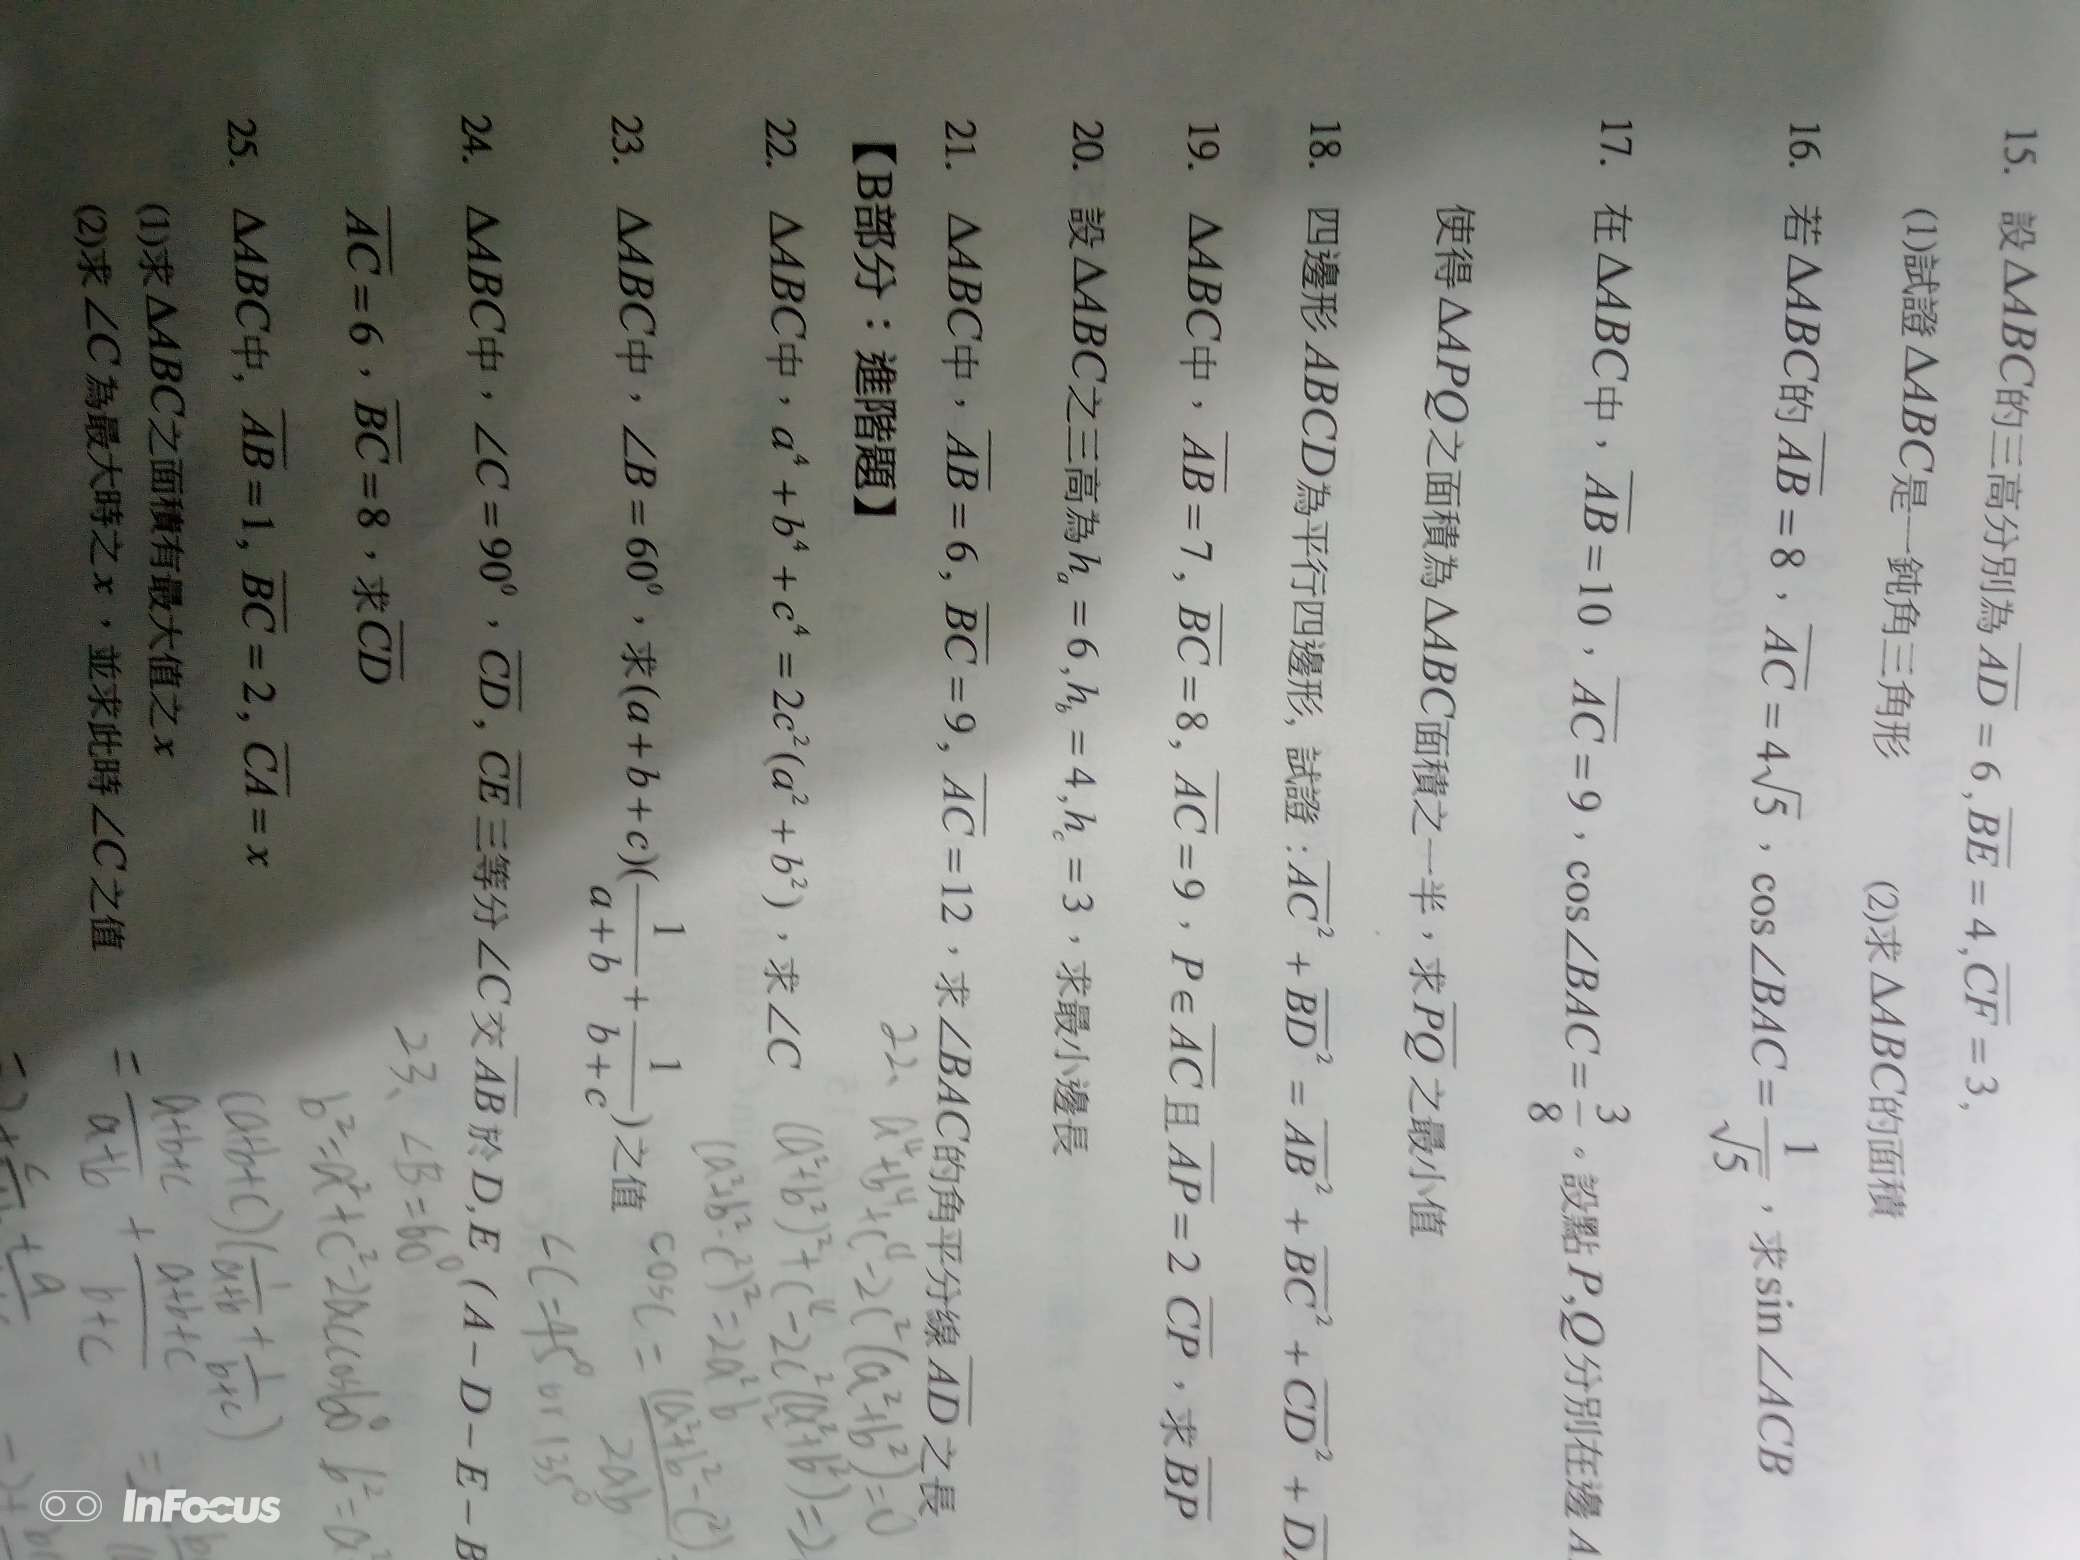 15. 設△ABC的三高分別為AD=6,BE=4,CF=3,
(1)試證△ABC是一鈍角三角形 (2)求△ABC的面積
16. 若△ABC的AB=8,AC=4√5,cos∠BAC=1/√5,求sin∠ACB
17. 在△ABC中,AB=10,AC=9,cos∠BAC=3/8。設點P,Q分別在邊
使得△APQ之面積為△ABC面積之一半,求PQ之最小值
18. 四邊形ABCD為平行四邊形,試證:AC²+BD²=AB²+BC²+CD²+
19. △ABC中,AB=7,BC=8,AC=9,P∈AC且AP=2CP,求BP
20. 設△ABC之三高為hₐ=6,h_b=4,h_c=3,求最小邊長
21. △ABC中,AB=6,BC=9,AC=12,求∠BAC的角平分線AD之長
【B部分:進階題】
22. △ABC中,a⁴+b⁴+c⁴=2c²(a²+b²),求∠C
23. △ABC中,∠B=60⁰,求(a+b+c)(1/(a+b)+1/(b+c))之值
24. △ABC中,∠C=90⁰,CD,CE三等分∠C交AB於D,E(A-D-E-B
AC=6,BC=8,求CD
25. △ABC中,AB=1,BC=2,CA=x
(1)求△ABC之面積有最大值之x
(2)求∠C為最大時之x,並求此時∠C之值
22、a⁴+b⁴+c⁴-2c²(a²+b²)=0
(a²+b²)²+c⁴-2c²(a²+b²)=2
(a²+b²-c²)²=2a²b
cosC=(a²+b²-c²)/2ab
∠C=45⁰ or 135⁰
23、∠B=60⁰
b²=a²+c²-2ac cos60⁰ b²=a²
(a+b+c)(1/(a+b)+1/(b+c))
=(a+b+c)/(a+b)+(a+b+c)/(b+c)
InFocus